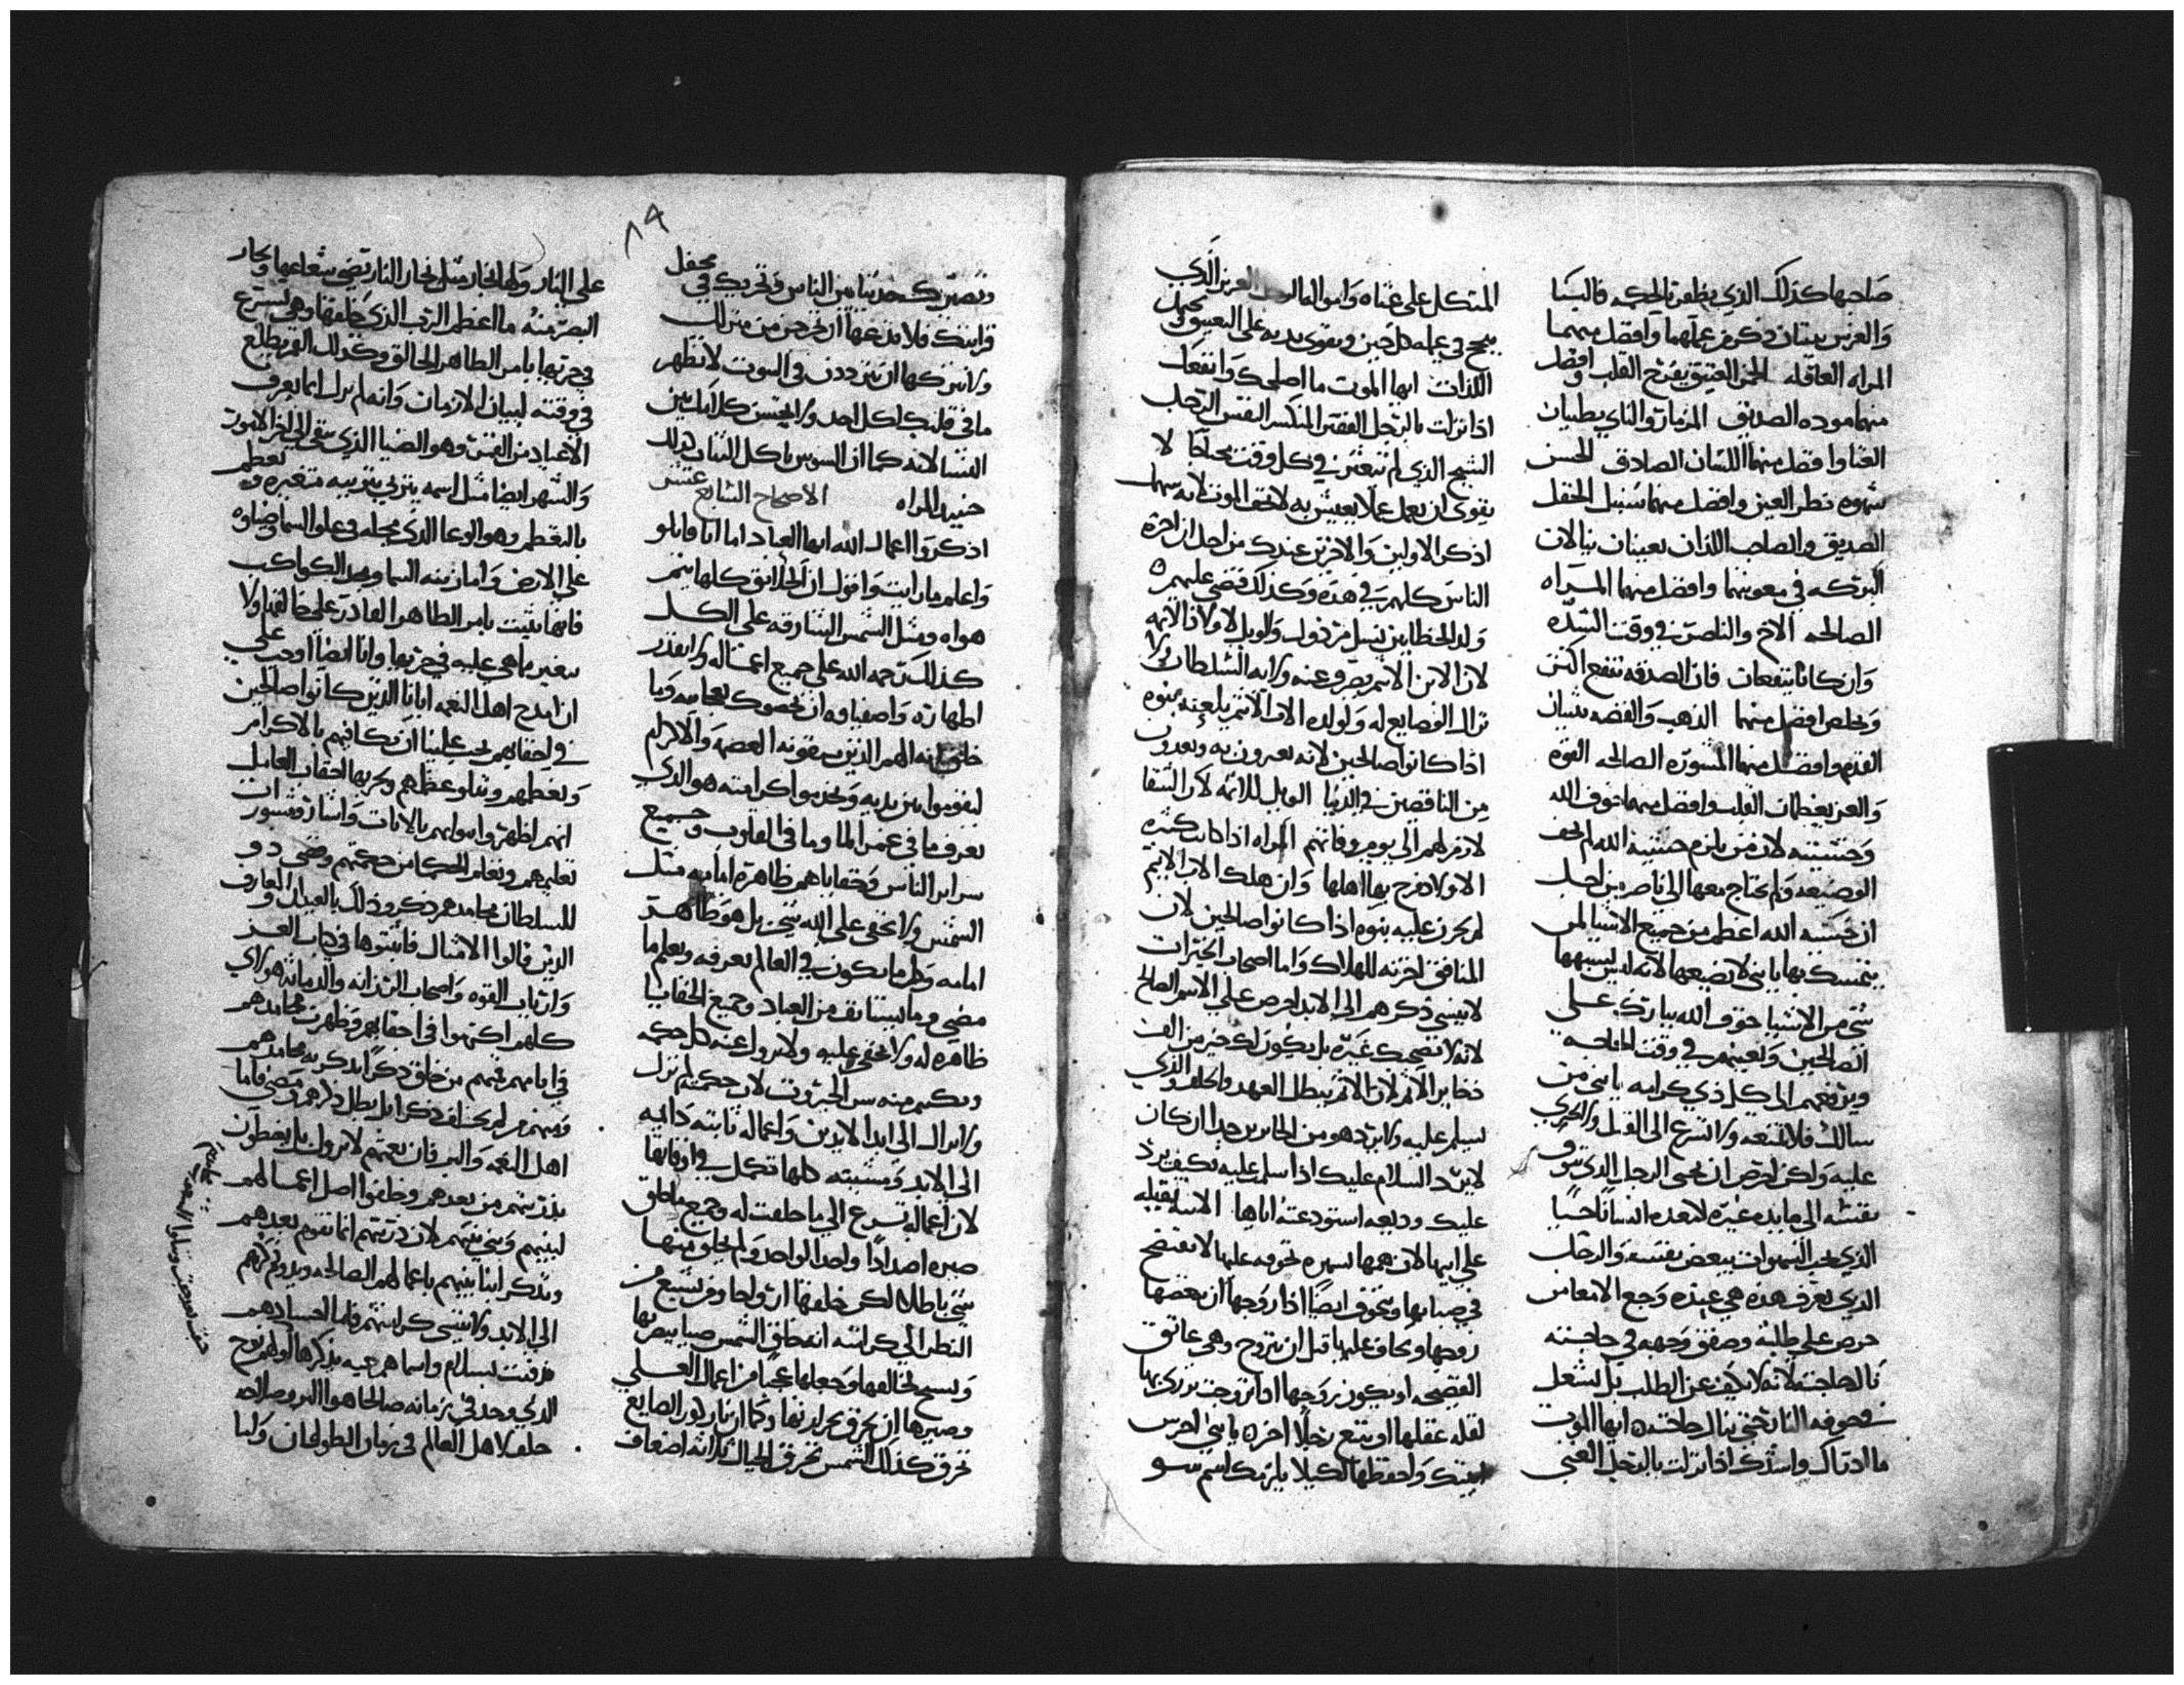 صاحبها كذلك الذي يظفر بالحكمه فالبنا
والغرس يبتان ذكر من عملهما وافضل منهما
المراه العاقله الخمر العتيق يفرح القلب وافضل
منهما موده الصديق المزمار والناي يطيبان
الغنا وافضل منهما اللسان الصادق الحسن
شهوه نظر العين وافضل منهما سنبل الحقل
الصديق والصاحب اللذان يعينان ينالان
البركه في معونتهما وافضل منهما المراه
الصالحه الاخ والناصر في وقت الشده
وان كانا ينفعان فان الصدقه تنفع اكثر
وتخلص افضل منهما الذهب والفضه يثبتان
القدم وافضل منهما المشوره الصالحه القوه
والعز يعظمان القلب وافضل منهما خوف الله
وخشيته لان من يلزم خشية الله لم يخف
الوضيعه ولم يحتاج معها الي ناصر من اجل
ان خشيه الله اعظم من جميع الاشيا لمن
يتمسك بها يا بني لا تضيعها لانه ليس يشبهها
شي من الاشيا خوف الله يبارك علي
الصالحين ويعينهم في وقت الحاجه
ويرفعهم الي كل ذي كرامه يا بني من
سالك فلا تمنعه ولا تسرع الي القتل والحري
عليه ولكن احرص ان تحيي الرجل الذي تتوق
نفسه الي مايده غيره لا تعده انسانا حسبا
الذي يحب الشهوات يبغض نفسه والرجل
الذي يعرف هذه هي عنده وجع الامعاس
حرص علي طلبة وصفق وجهه في حاجته
نال حاجته لانه لا يكف عن الطلب بل يشعل
في جوفه النار حتي ينال حاجته ايها الموت
ما ارداك واشدك اذا نزلت بالرجل الغني
المتكل علي غناه وامواله العزيز الذي
ينجح في عمله كل حين ويقوي يديه علي النعيم ويحمل
اللذات ايها الموت ما اصلحك وانفعك
اذا نزلت بالرجل الفقير المنكسر النفس الرجل
الشيخ الذي لم يتعثر في كل وقت محتاجا لا
يقوي ان يعمل عملا يعيش به لا تخف الموت لانه سهمك
اذكر الاولين والاخرين عندك من اجل ان اخرة
الناس كلهم في هذه وكذلك قضي عليهم
ولد الخطايين نسل مرذول والويل لاولاد الاثمه
لان الابن الاثم يصرف عنه رايه السلطان ولا
تزال الفضايح له ولولده الاب الاثم يلعنه بنوه
اذا كانوا صالحين لانه يعيرون به ويعدون
من الناقصين في الدنيا الويل للاثمه لان الشقا
لازم لهم الي يوم وفاتهم المراه اذا كانت كثيره
الاولاد فرح بها اهلها وان هلك الاب الاثيم
لم يحزن عليه بنوه اذا كانوا صالحين لان
المنافق اخرته للهلاك واما اصحاب الخيرات
لا ينسي ذكرهم الي الابد احرص علي الاسم الصالح
لانه لا يصحبك غيره بل يكون لك خير من الف
ذخاير الاثم لان الاثم يبطل العهد والحلف والذي
يسلم عليه ولا يرد هو من الجايرين جدا ان كان
لا يرد السلام عليك اذا سلمت عليه فكيف يرد
عليك وديعه استودعته اياها الابنه ثقيله
علي ابيها لان همها يسهره تخوفه عليها لا تفتضح
في صباها ويتخوف ايضا اذا زوجها ان يبغضها
زوجها ويخاف عليها قبل ان تتزوج وهي عاتق
الفضيحه او يكون زوجها اذا تزوجت يزري بها
لقله عقلها او تتبع رجلا اخر يا بني احرس
ابنتك واحفظها لكيلا يلزمك اسم سو
٨٩
وتصيرك حديثا بين الناس وتخزيك في محفل
قرابتك فلا تدعها ان تخرج من منزلك
ولا تتركها ان تتردد في البيوت لا تظهر
ما في قلبك لكل احد ولا تجلس بين
النسا لانه كما ان السوس ياكل الثياب كذلك
حنيد المراه الاصحاح السابع عشر
اذكروا اعمال الله ايها العباد اما انا فاتلو
واعلم ما رايت واقول ان الخلايق كلها يتم
هواه ومثل الشمس الشارقه علي الكل
كذلك رحمه الله علي جميع اعماله ولا يقدر
اطهاره واصفياوه ان يحصوك عجايبه ويا
خلق الله الهم الذين يتقونه العصمه والاكرام
ليقوموا بين يديه ويخدموا كرامته هو الذي
يعرف ما في عمق الما وما في القلوب وجميع
سراير الناس وخفاياهم ظاهرة امامه مثل
الشمس ولا يخفي علي الله شي بل هو ظاهر
امامه وكل ما يكون في العالم يعرفه ويعلم ما
مضي وما يستانف من العباد وجميع الخفايا
ظاهره له ولا يخفي عليه ولا يزول عنه كل حكمه
وبكم منه سن الجبروت لان حكمته لم تزل
ولا تزال الي ابد الابدين واعماله ثابته دايمه
الي الابد ومشيته كلها تكمل في اوقاتها
لان اعماله تسرع الي ما خلقت له وجميع ما خلق
صيره اضدادا واحدا لواحد ولم يخلق منها
شي باطلا لكن خلقها ازواجا ومن يشبع من
النظر الي كرامته انه خلق الشمس ضيا يبصر بها
ويسبح لخالقها وجعلها عجبا من اعمال العلي
وصيرها ان تحرق بحرارتها وكما ان نار كور الصايغ
تحرق كذلك الشمس تحرق الجبال ثلاثه اضعاف
علي النار ولها بخار مثل بخار النار تضي بشعاعها ويحار
البصر منه ما اعظم الرب الذي خلقها وهي تسرع
في جريها بامر الطاهر الخالق وكذلك القمر يطلع
في وقته لبيان الازمان وانه لم يزل انما يعرف
الاعياد من القمر وهو الضيا الذي يبقي الي اخر الامور
والشهر ايضا مثل اسمه يتربي بتربيه متغيره ويعظم
بالتعظم وهو الوعا الذي محله في علو السما ضياوه
علي الارض واما زينه السما ومجد الكواكب
فانها تثبت بامر الطاهر القادر علي خالقها ولا
يتغير ما هي عليه في جريها وانا ايضا اوجب علي
ان امدح اهل النعمه ابانا الذين كانوا صالحين
في احقابهم يجب علينا ان نكافيهم بالاكرام
ونعظمهم ونتلو عظاتهم ونخبر بها احقاب العامل
انهم اظهروا سواتهم بالايات واشاروا بمشورات
تعليمهم وتعلم الحكما من حكمتهم وضي دو
للسلطان محامدهم ذكروا ذلك بالعيدان والمعازف
الذين قالوا الامثال فاثبتوها في كتاب العز
وارباب القوه واصحاب الرزانه والدمانه هولاي
كلهم اكرموا في احقابهم وظهرت محامدهم
في ايامهم فمنهم من خلف ذكرا يذكر به محامدهم
ومنهم من لم يخلف ذكرا بل بطل ذكرهم ومضي فاما
اهل النعمه والبر فان نعمتهم لا تزول بل يعطون
بذريتهم من بعدهم وخلفوا اصل اعمالهم
لبنيهم وبني بنيهم لان ذريتهم انما تقوم بعدهم
ويذكر ابنا بنيهم باعمالهم الصالحه ويدوم ذكرهم
الي الابد ولا ينسي كرامتهم فاما اجسادهم
فدفنت بسلام واسماهم حيه يذكرها اولهم نوح
الذي وجد في زمانه صالحا هو البر وصار له
خلفا لاهل العالم في زمان الطوفان وكلنا